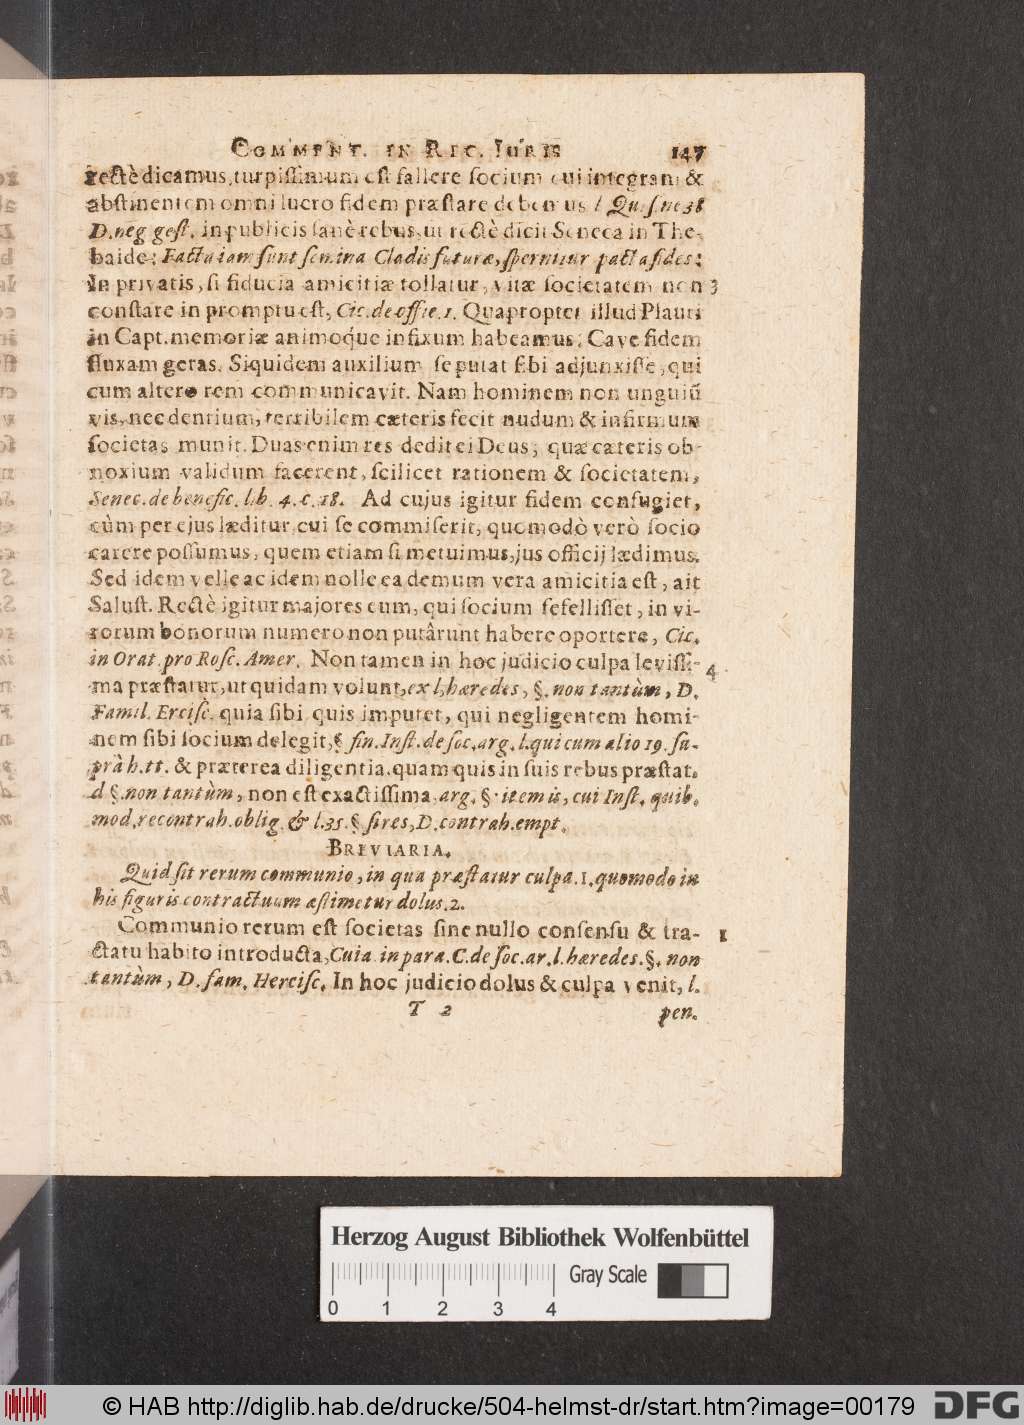 COMMENT. IN REC. IURIS 147
rectè dicamus, turpissimum est fallere socium cui integram &
abstinentem omni lucro fidem præstare debemus l Qu. s. ne 38
D. neg gest. in publicis sanè rebus, ut rectè dicit Seneca in The-
baide: Facta iam sunt semina Cladis futuræ, spernitur pacta fides:
In privatis, si fiducia amicitiæ tollatur, vitæ societatem non 3
constare in promptu est, Cic. de offic. 1. Quapropter illud Plauti
in Capt. memoriæ animoq́ue infixum habeamus; Cave fidem
fluxam geras. Siquidem auxilium se putat sibi adjunxisse, qui
cum altero rem communicavit. Nam hominem non unguiũ
vis, nec dentium, terribilem cæteris fecit nudum & infirmum
societas munit. Duas enim res dedit ei Deus, quæ cæteris ob-
noxium validum facerent, scilicet rationem & societatem,
Senec. de benefic. lib. 4. c. 18. Ad cujus igitur fidem confugiet,
cùm per ejus læditur, cui se commiserit, quomodò verò socio
carere possumus, quem etiam si metuimus, jus officij lædimus.
Sed idem velle ac idem nolle ea demum vera amicitia est, ait
Salust. Rectè igitur majores eum, qui socium fefellisset, in vi-
rorum bonorum numero non putârunt habere oportere, Cic.
in Orat. pro Rosc. Amer. Non tamen in hoc judicio culpa levissi- 4
ma præstatur, ut quidam volunt, ex l, hæredes, §. non tantùm, D.
Famil. Ercisc. quia sibi quis imputet, qui negligentem homi-
nem sibi socium delegit, § fin. Inst. de soc. arg. l. qui cum alio 19. su-
prà h. tt. & præterea diligentia, quam quis in suis rebus præstat,
d §. non tantùm, non est exactissima, arg. §. item is, cui Inst. quib.
mod. re contrah. oblig. & l. 35. §. si res, D. contrah. empt.
BREVIARIA.
Quid sit rerum communio, in qua præstatur culpa. 1. quomodo in
his figuris contractuum æstimetur dolus. 2.
Communio rerum est societas sine nullo consensu & tra- 1
ctatu habito introducta, Cuia. in para. C. de soc. ar. l. hæredes. §. non
tantùm, D. fam. Hercisc. In hoc judicio dolus & culpa venit, l.
T 2 pen.
Herzog August Bibliothek Wolfenbüttel
Gray Scale
0 1 2 3 4
© HAB http://diglib.hab.de/drucke/504-helmst-dr/start.htm?image=00179 DFG